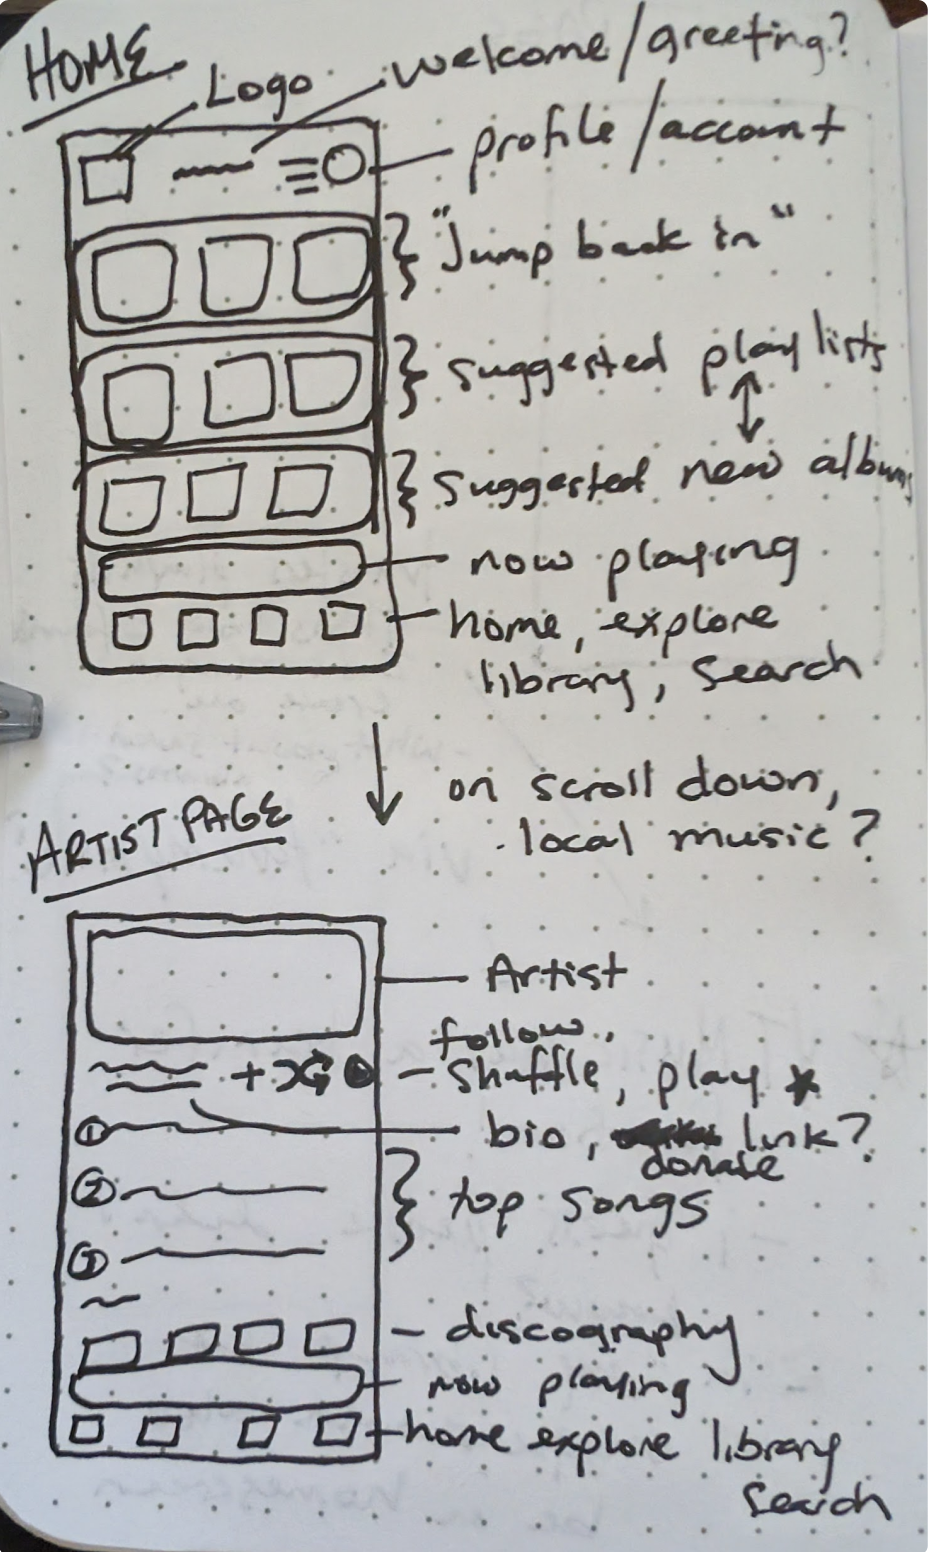 HOME
Logo
welcome/greeting?
profile/account
"Jump back in"
suggested playlists
suggested new albums
now playing
home, explore
library, search
on scroll down,
local music?
ARTIST PAGE
Artist
follow,
shuffle, play *
bio, link?
donate
1
2
3
top songs
discography
now playing
home explore library
search